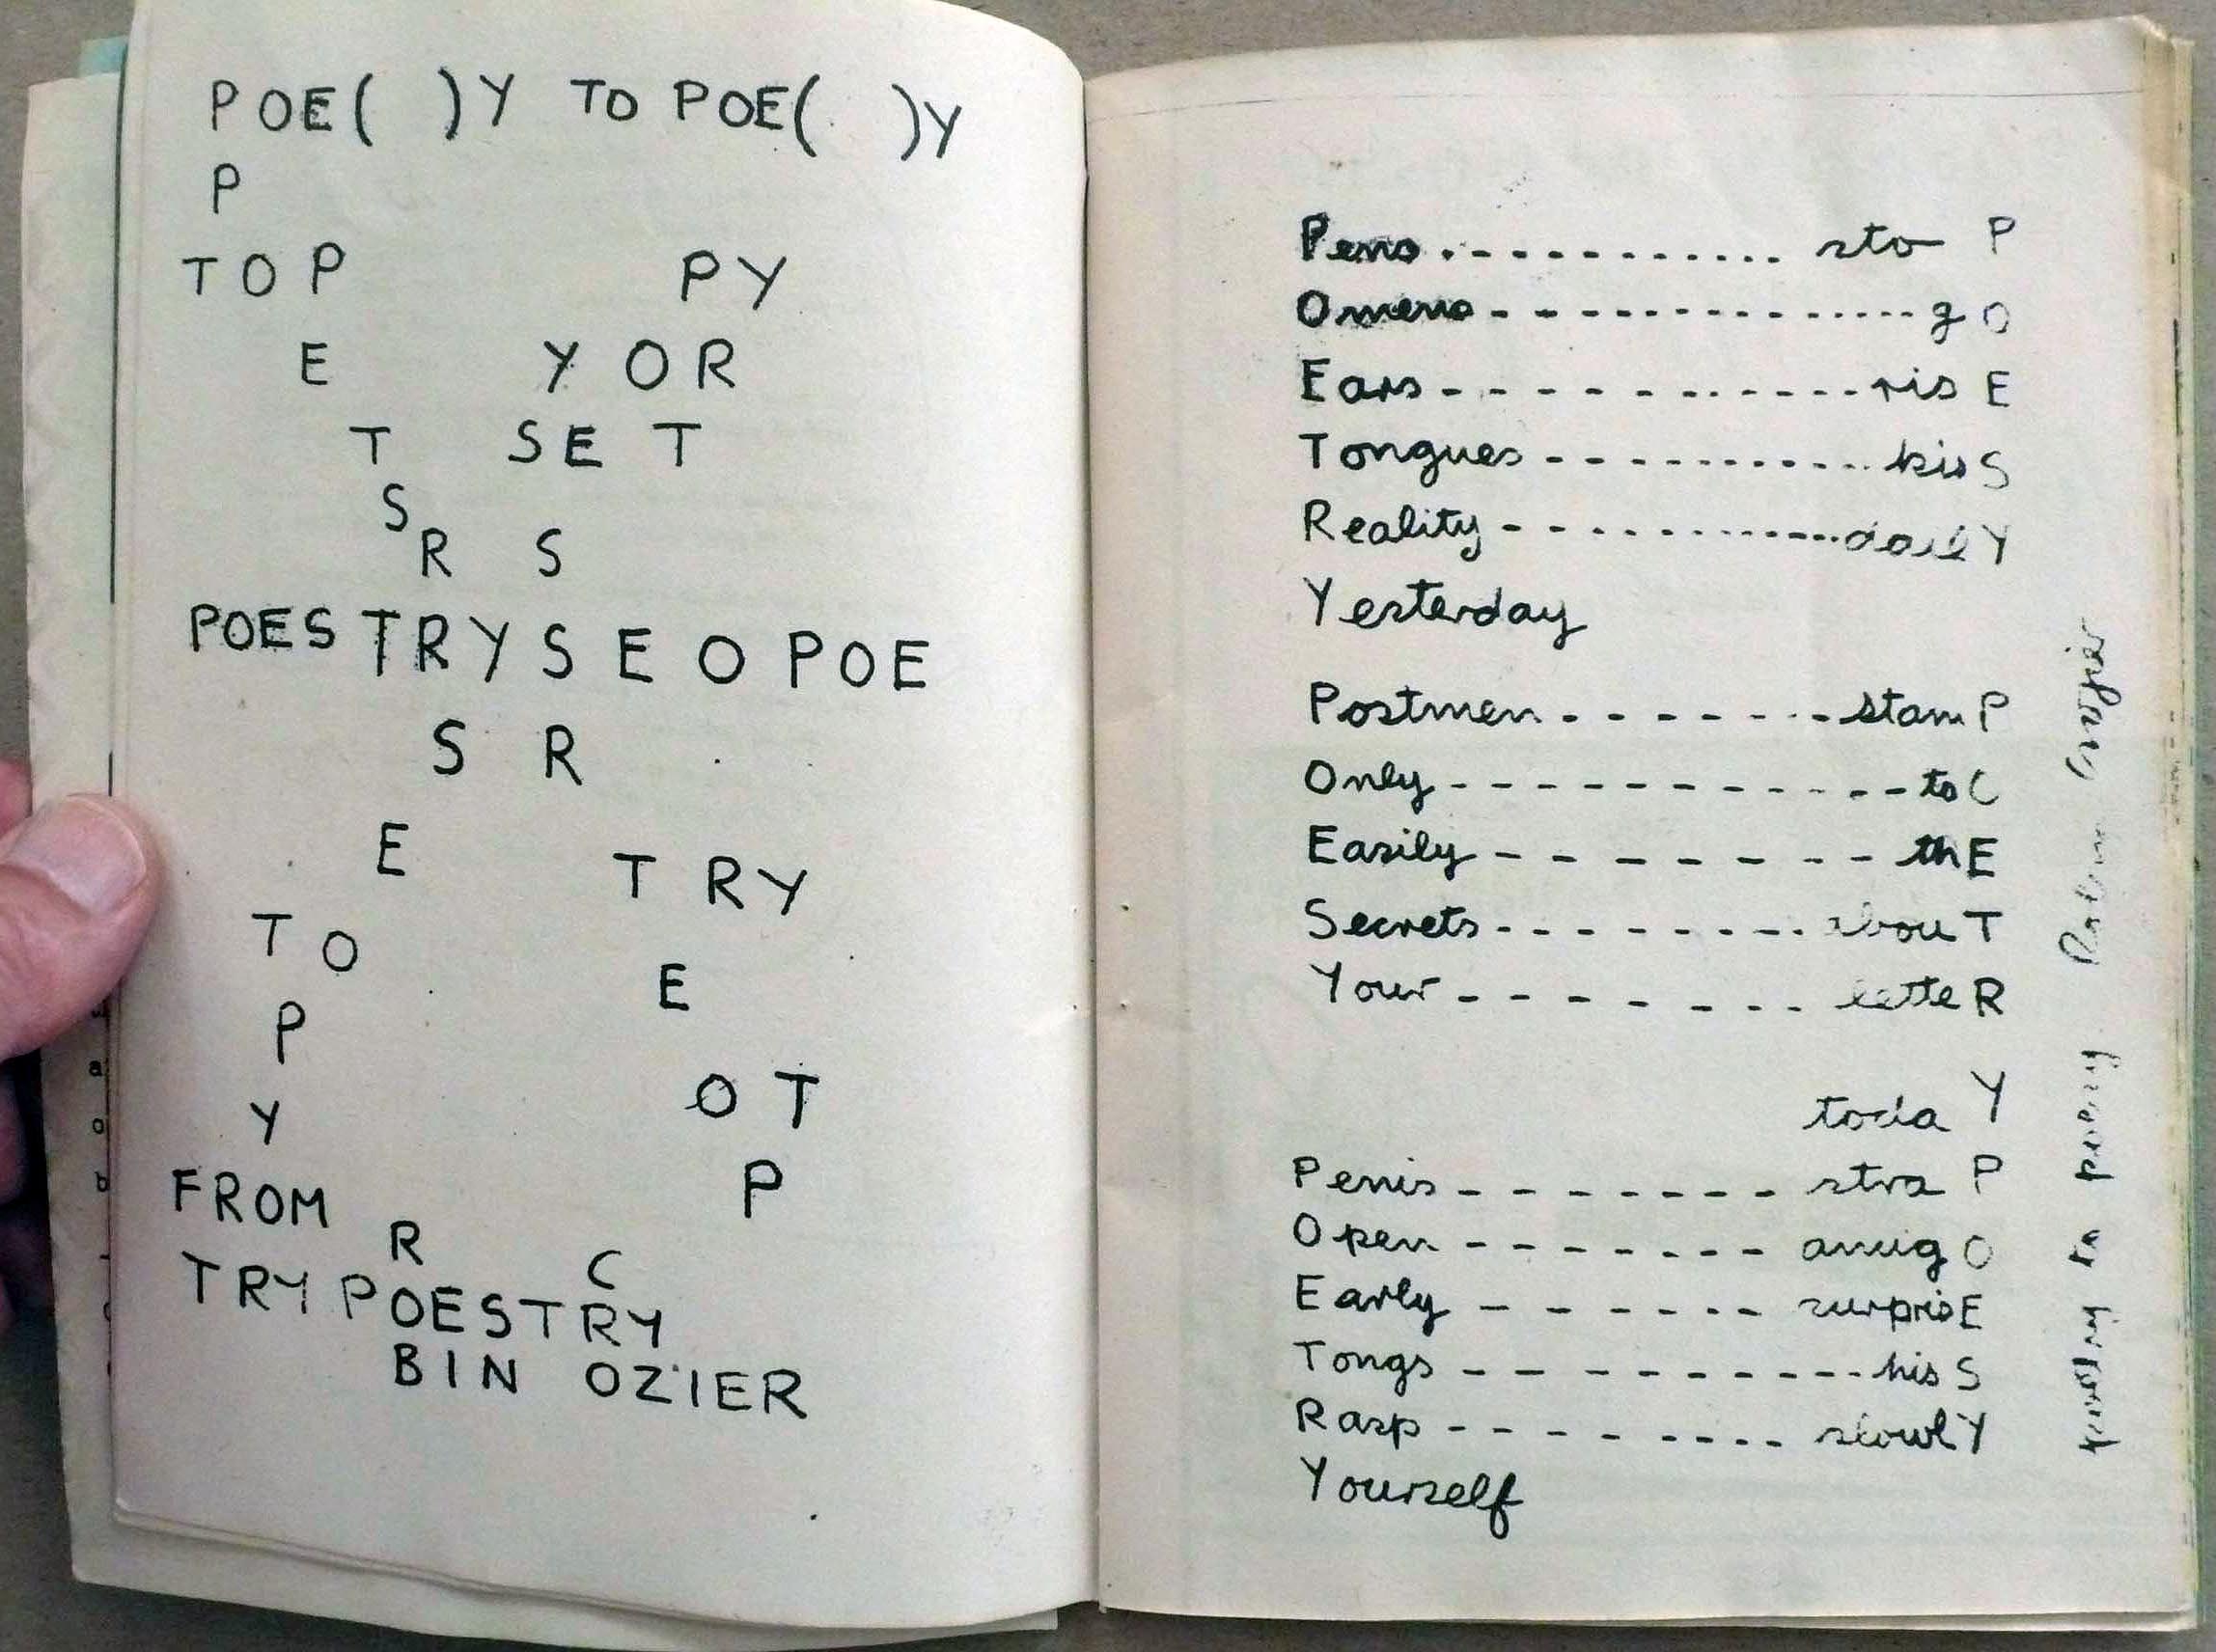 POE( )Y TO POE( )Y
P
TOP PY
E Y OR
T SE T
S
R S
POESTRYSEOPOE
S R
E
T RY
TO
E
P
OT
Y
P
FROM
R
C
TRYPOESTRY
BIN OZIER
Pens............ sto P
Omens - - - - - - - - - - - - g O
Ears - - - - - - - - - - - - ris E
Tongues - - - - - - - - - - - kis S
Reality - - - - - - - - - - - dail Y
Yesterday
Postmen - - - - - - - - stam P
Only - - - - - - - - - - - - to C
Easily - - - - - - - - - th E
Secrets - - - - - - - - - abou T
Your - - - - - - - - lette R
toda Y
Penis - - - - - - - - stra P
Open - - - - - - - - amig O
Early - - - - - - - surpris E
Tongs - - - - - - - - - - his S
Rasp - - - - - - - - - slowl Y
Yourself
poesy to poetry Robin Crozier